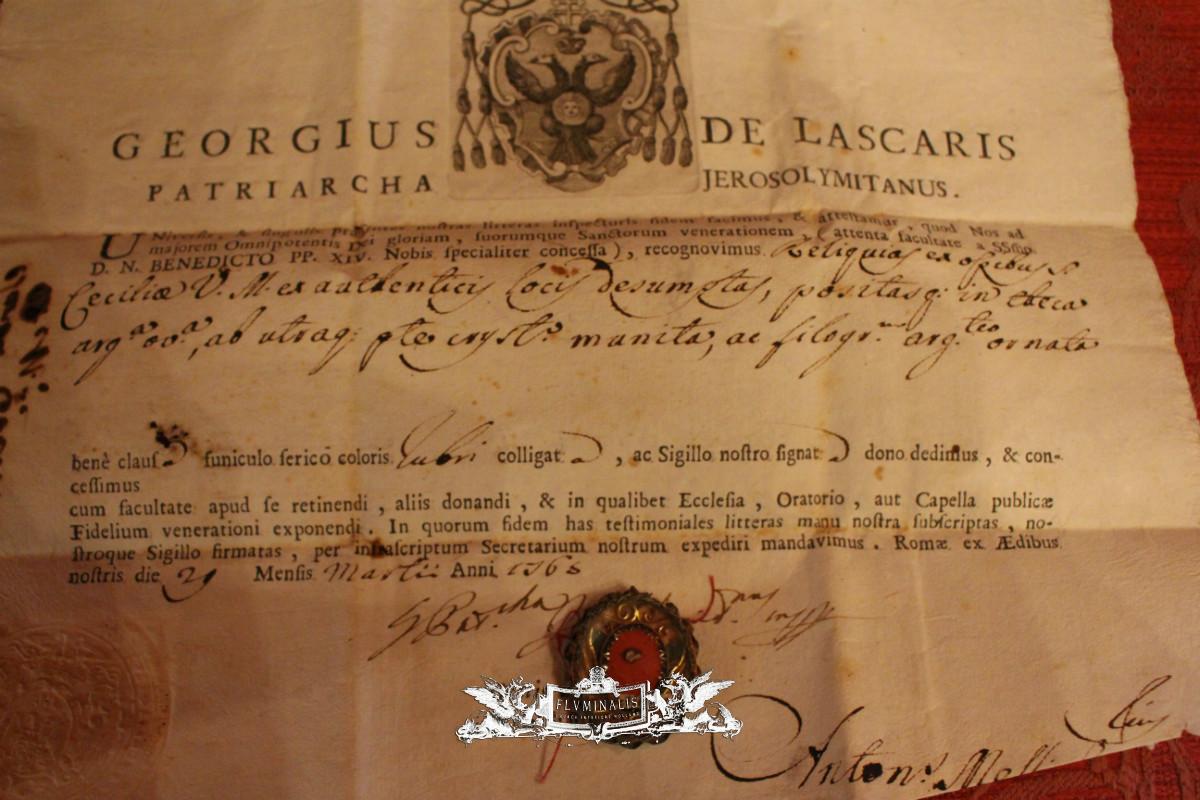 GEORGIUS DE LASCARIS
PATRIARCHA JEROSOLYMITANUS.
UNiversis, & singulis Præsentes nostras litteras inspecturis fidem facimus, & attestamur, quod Nos ad
majorem Omnipotentis Dei gloriam, suorumque Sanctorum venerationem, (attenta facultate a SSmo
D. N. BENEDICTO PP. XIV. Nobis specialiter concessa), recognovimus Reliquias ex ossibus S.
Ceciliæ V. M. ex authenticis locis desumptas, positasq: in theca
arg.a ov.a, ab utraq: pte cryst.o munita, ac filogr. arg.teo ornata
benè claus funiculo serico coloris rubri colligat a, ac Sigillo nostro signat a dono dedimus, & con-
cessimus
cum facultate apud se retinendi, aliis donandi, & in qualibet Ecclesia, Oratorio, aut Capella publicæ
Fidelium venerationi exponendi. In quorum fidem has testimoniales litteras manu nostra subscriptas, no-
stroque Sigillo firmatas, per infrascriptum Secretarium nostrum expediri mandavimus. Romæ ex Ædibus
nostris die 29 Mensis Martii Anni
FLVMINALIS
Anton.s